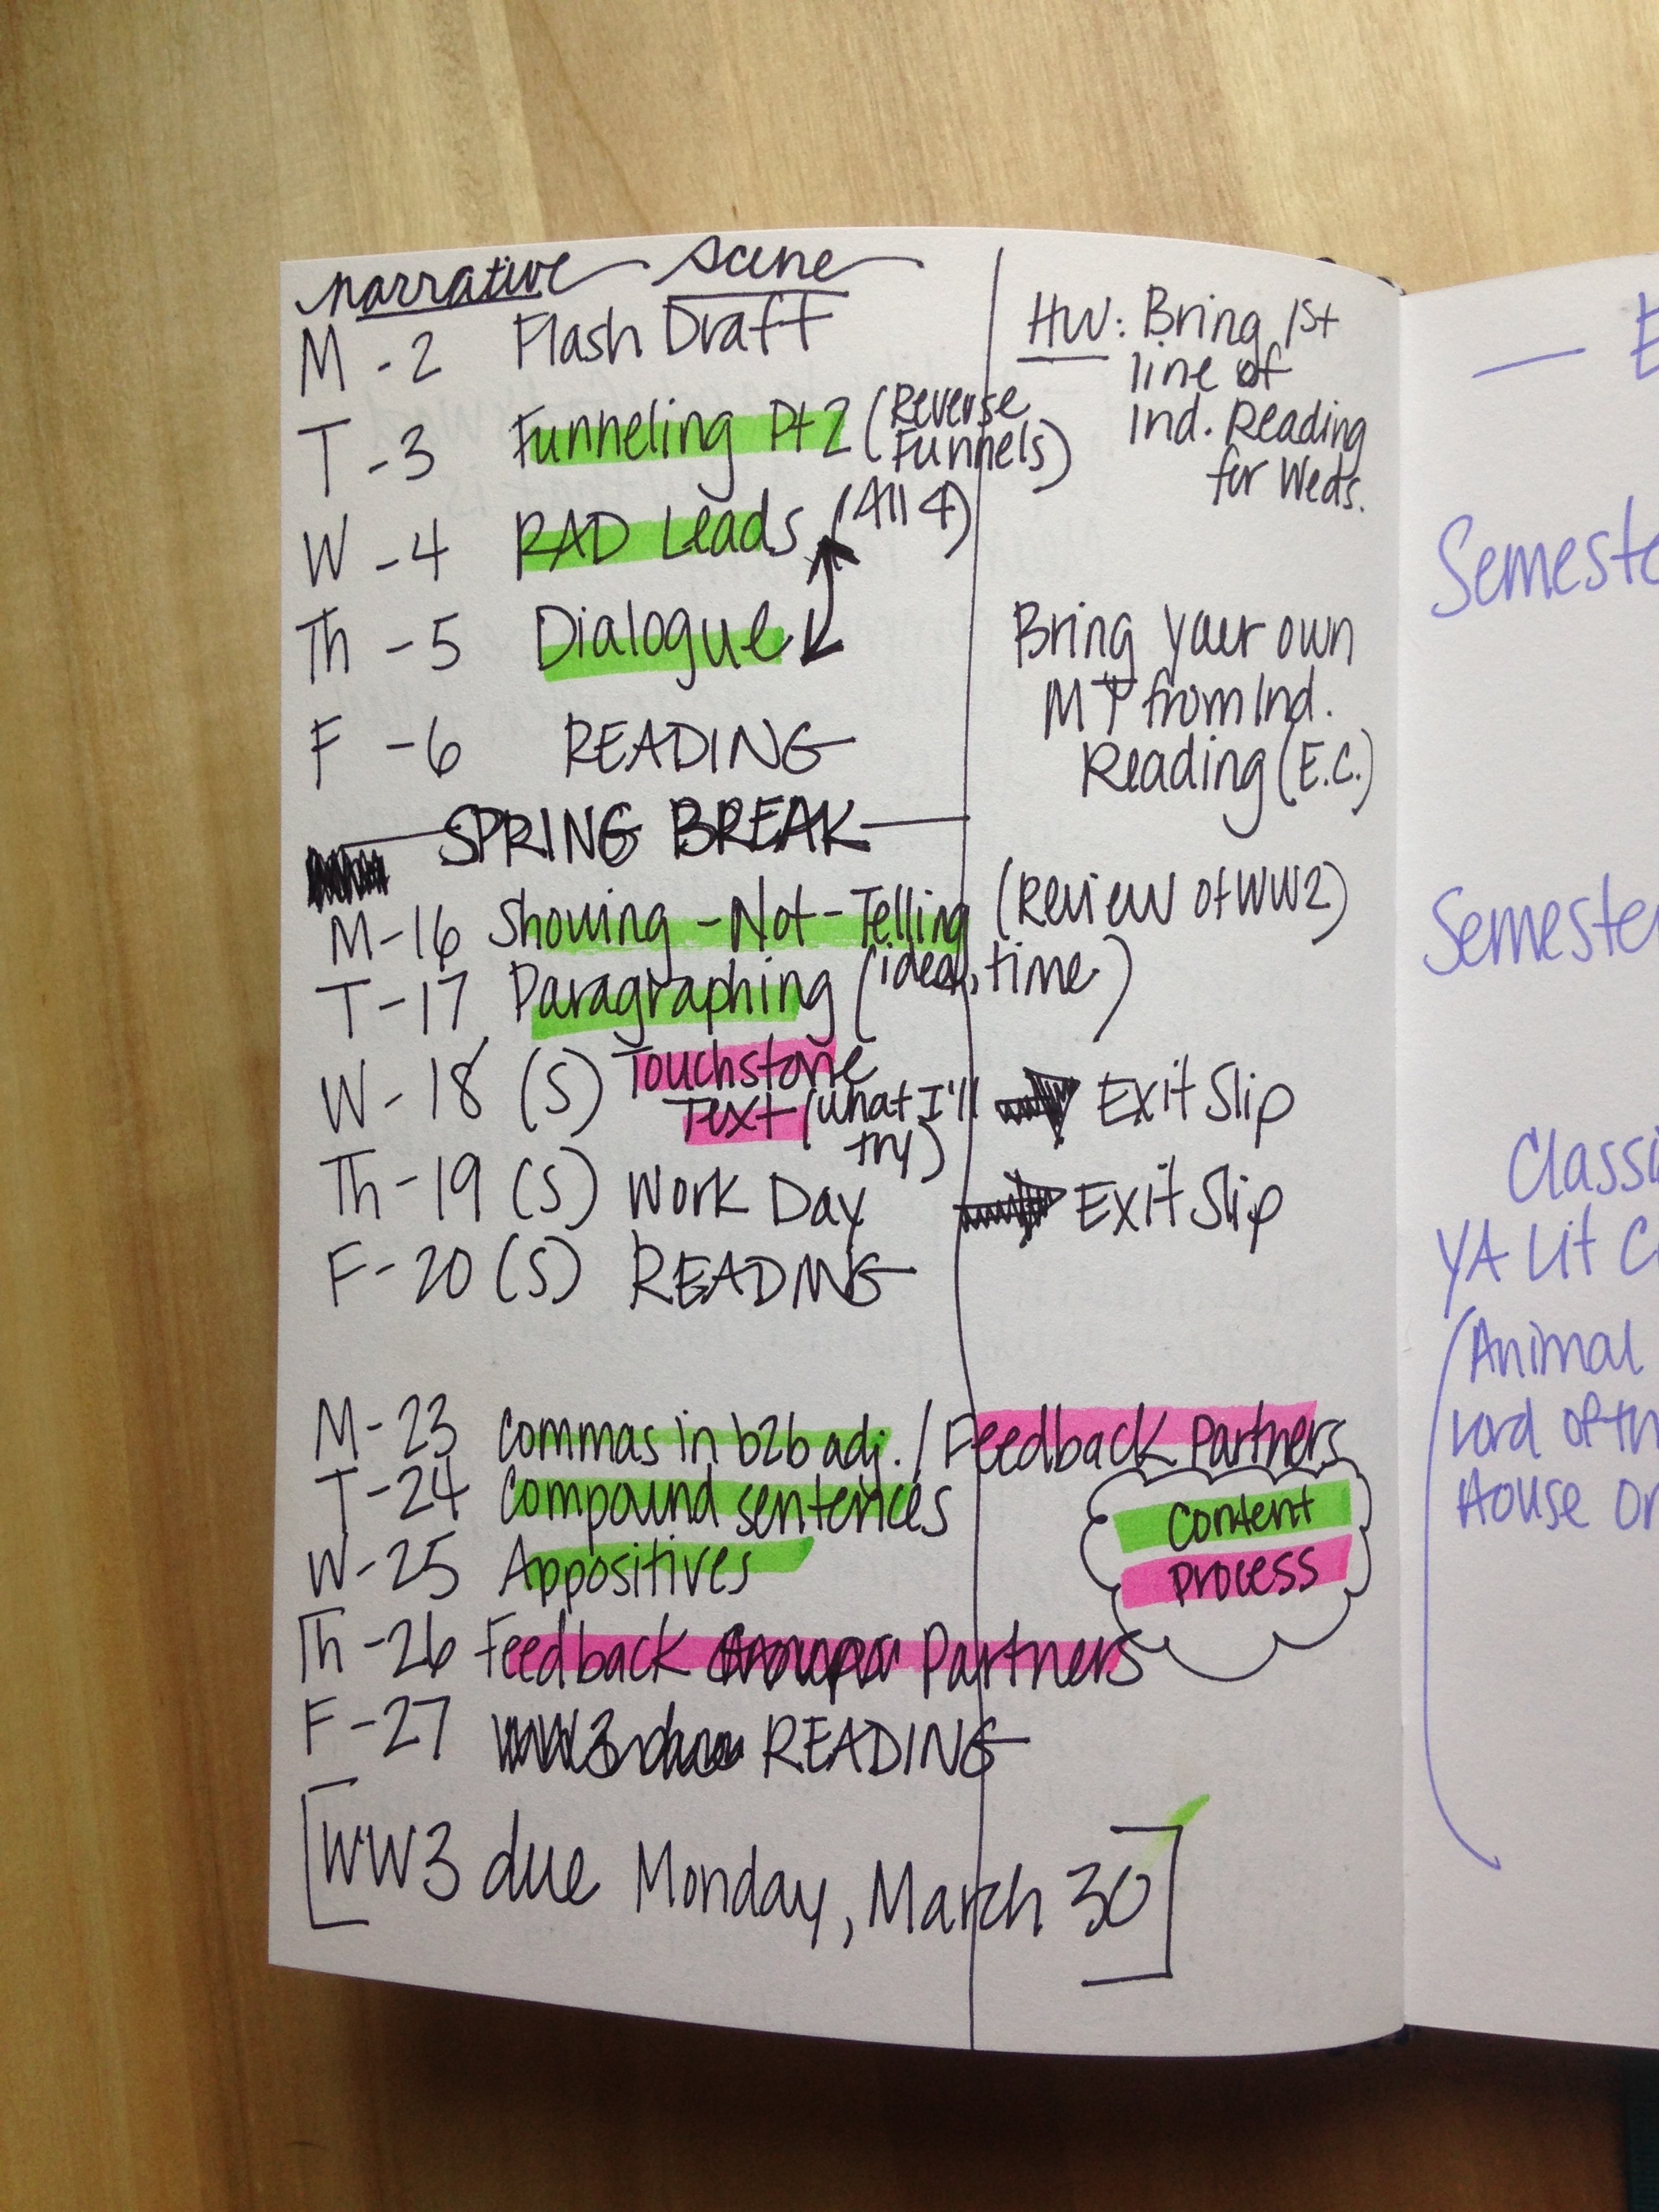 narrative scene
M - 2 Flash Draft
HW: Bring 1st
line of
Ind. Reading
for Weds.
T - 3 Funneling Pt 2 (Reverse
Funnels)
W - 4 RAD Leads (All 4)
Th - 5 Dialogue
Bring your own
MT from Ind.
Reading (E.C.)
F - 6 READING
SPRING BREAK
M-16 Showing-Not-Telling (Review of WW2)
T-17 Paragraphing (idea, time)
W-18 (S) Touchstone
Text (what I'll
try)
Exit Slip
Th-19 (S) Work Day Exit Slip
F-20 (S) READING
M-23 Commas in b2b adj. / Feedback Partners
T-24 Compound sentences
W-25 Appositives
Content
Process
Th-26 Feedback Partners
F-27 WW3 due READING
[WW3 due Monday, March 30]
— E
Semeste
Semeste
Classi
YA Lit C
(Animal
Lord of th
House on